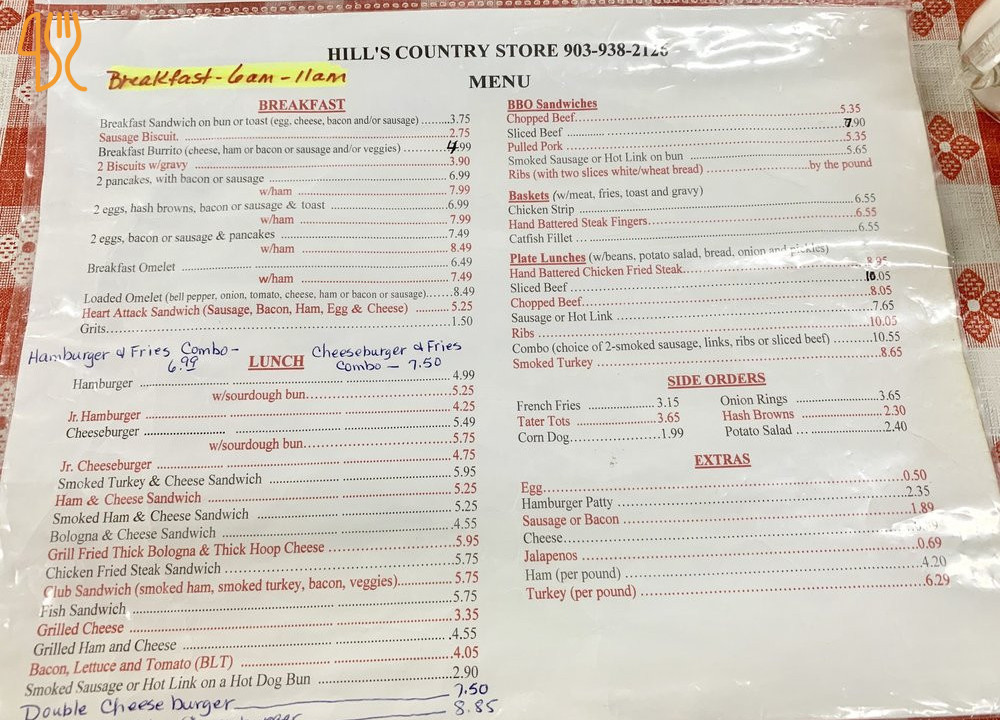 HILL'S COUNTRY STORE 903-938-2126
Breakfast - 6am - 11am
MENU
BREAKFAST
Breakfast Sandwich on bun or toast (egg, cheese, bacon and/or sausage) ........3.75
Sausage Biscuit. ........2.75
Breakfast Burrito (cheese, ham or bacon or sausage and/or veggies) ........4.99
2 Biscuits w/gravy ........3.90
2 pancakes, with bacon or sausage ........6.99
w/ham ........7.99
2 eggs, hash browns, bacon or sausage & toast ........6.99
w/ham ........7.99
2 eggs, bacon or sausage & pancakes ........7.49
w/ham ........8.49
Breakfast Omelet ........6.49
w/ham ........7.49
Loaded Omelet (bell pepper, onion, tomato, cheese, ham or bacon or sausage)........8.49
Heart Attack Sandwich (Sausage, Bacon, Ham, Egg & Cheese) ........5.25
Grits........1.50
Hamburger & Fries Combo - 6.99
LUNCH
Cheeseburger & Fries Combo - 7.50
Hamburger ........4.99
w/sourdough bun........5.25
Jr. Hamburger ........4.25
Cheeseburger ........5.49
w/sourdough bun........5.75
Jr. Cheeseburger ........4.75
Smoked Turkey & Cheese Sandwich ........5.95
Ham & Cheese Sandwich ........5.25
Smoked Ham & Cheese Sandwich ........5.25
Bologna & Cheese Sandwich ........4.55
Grill Fried Thick Bologna & Thick Hoop Cheese ........5.95
Chicken Fried Steak Sandwich ........5.75
Club Sandwich (smoked ham, smoked turkey, bacon, veggies)........5.75
Fish Sandwich ........5.75
Grilled Cheese ........3.35
Grilled Ham and Cheese ........4.55
Bacon, Lettuce and Tomato (BLT) ........4.05
Smoked Sausage or Hot Link on a Hot Dog Bun ........2.90
Double Cheeseburger 7.50
8.85
BBQ Sandwiches
Chopped Beef........5.35
Sliced Beef ........7.90
Pulled Pork ........5.35
Smoked Sausage or Hot Link on bun ........5.65
Ribs (with two slices white/wheat bread) ........by the pound
Baskets (w/meat, fries, toast and gravy)
Chicken Strip ........6.55
Hand Battered Steak Fingers........6.55
Catfish Fillet ........6.55
Plate Lunches (w/beans, potato salad, bread, onion and pickles)
Hand Battered Chicken Fried Steak........8.95
Sliced Beef ........10.05
Chopped Beef........8.05
Sausage or Hot Link ........7.65
Ribs ........10.05
Combo (choice of 2-smoked sausage, links, ribs or sliced beef) ........10.55
Smoked Turkey ........8.65
SIDE ORDERS
French Fries ........3.15
Tater Tots ........3.65
Corn Dog........1.99
Onion Rings ........3.65
Hash Browns ........2.30
Potato Salad ........2.40
EXTRAS
Egg........0.50
Hamburger Patty ........2.35
Sausage or Bacon ........1.89
Cheese........
Jalapenos ........0.69
Ham (per pound) ........4.20
Turkey (per pound) ........6.29